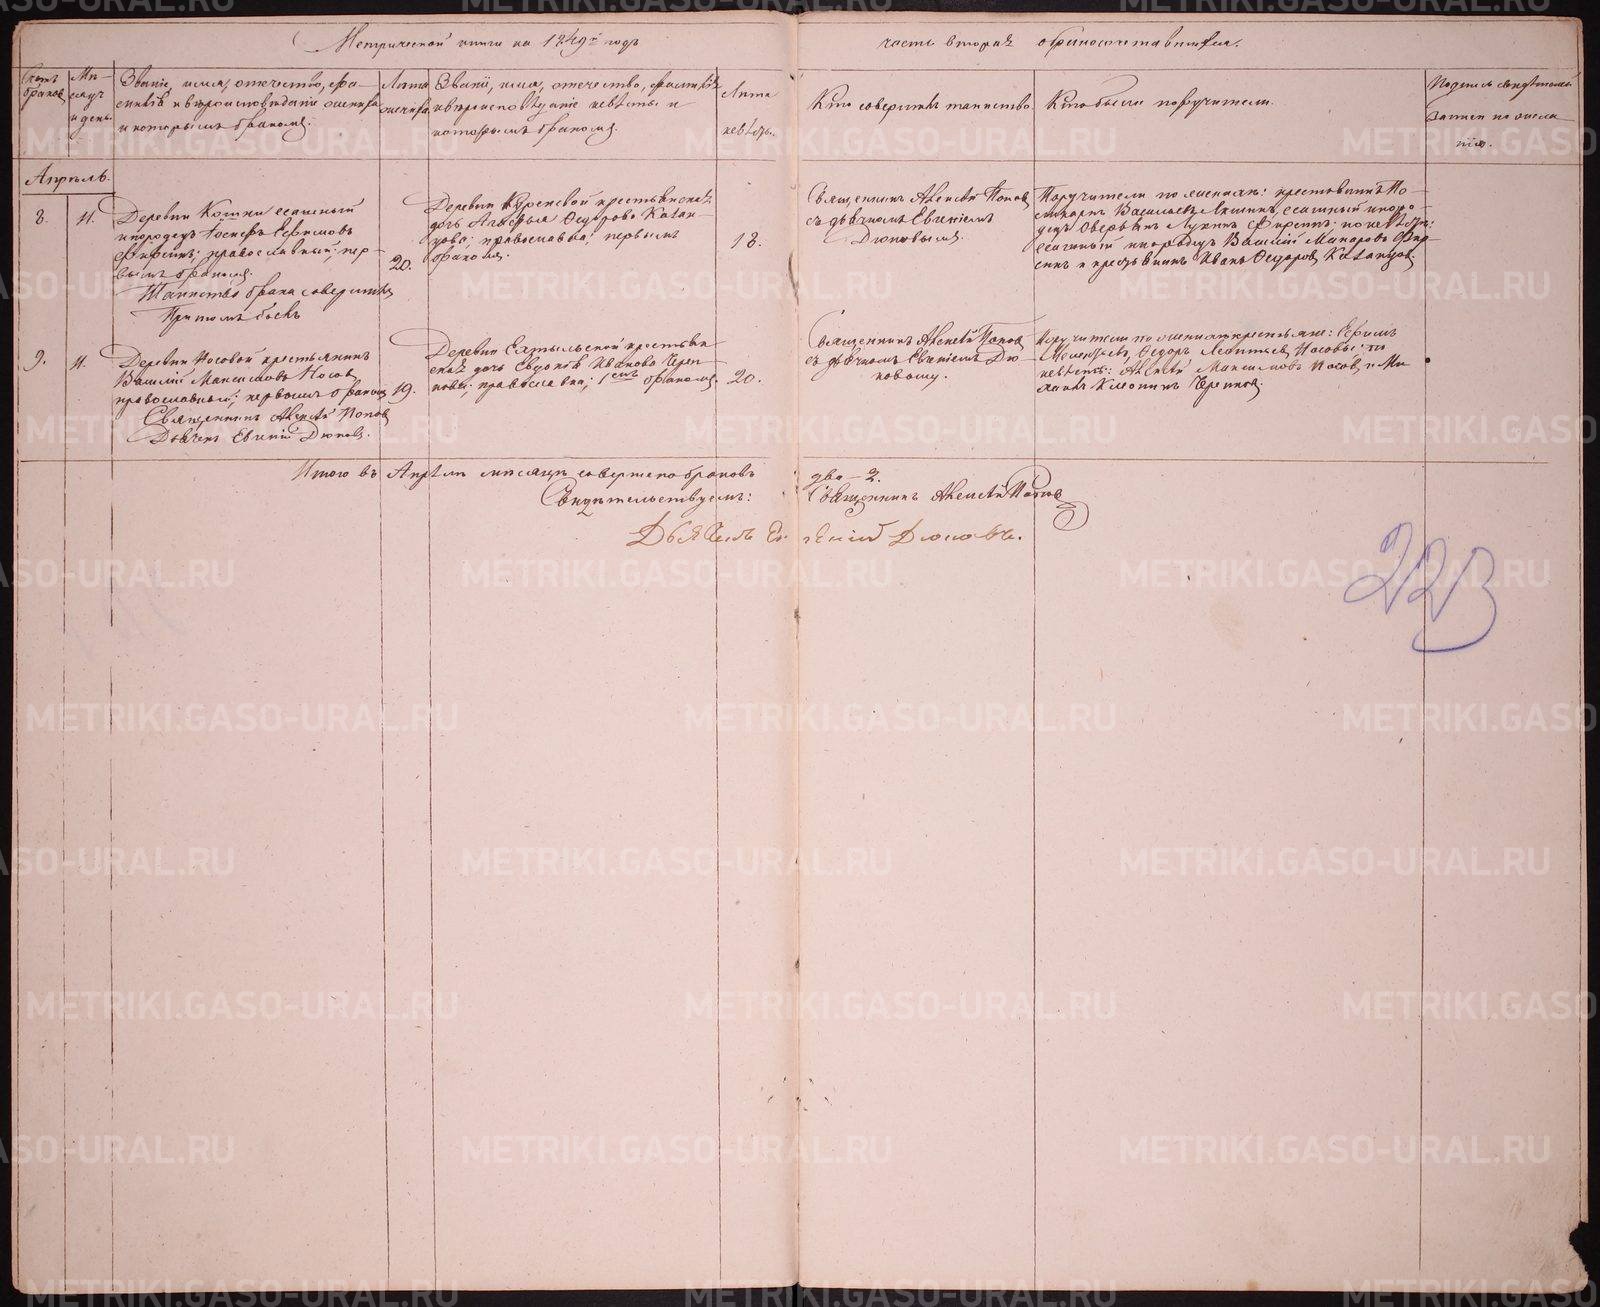 Метрической книги на 1849й годъ часть вторая о бракосочетавшихся.
Счетъ браковъ
Мѣсяцъ и день.
Званіе, имя, отчество, фамилія и вѣроисповѣданіе жениха и которымъ бракомъ.
Лѣта жениха.
Званіе, имя, отчество, фамилія
и вѣроисповѣданіе невѣсты и
которымъ бракомъ.
Лѣта
невѣсты.
Кто совершилъ таинство.
Кто были поручители.
Подпись свидѣтелей
записи по жела-
нію.
Апрѣль.
8.
11.
Деревни ясашный
инородецъ Іосифъ Ефимовъ
православный, пер-
вымъ бракомъ.
20.
Деревни крестьянская
дочь Федорова Казан-
цова; православна; первымъ
бракомъ.
18.
Священникъ Алексѣй Поповъ
съ дьячкомъ Евгеніемъ
Дюковымъ.
Поручители по женихѣ: крестьянинъ
Васильевъ ясашный иноро-
децъ по невѣстѣ:
ясашный инородецъ Василій Макаровъ
и крестьянинъ Иванъ Федоровъ Казанцовъ.
Таинство брака совершилъ
При томъ былъ
9.
11.
Деревни Носовой крестьянинъ
Василій Максимовъ Носовъ
православный; первымъ бракомъ
19.
Деревни крестьян-
ская дочь Евдокія Иванова Череп-
нова; православна; 1ымъ бракомъ.
20.
Священникъ Алексѣй Поповъ
съ дьячкомъ Евгеніемъ Дю-
ковымъ.
Поручители по женихѣ крестьяне: Ефимъ
Федоръ Леонтьевъ Носовы; по
невѣстѣ: Алексѣй Максимовъ Носовъ, и Ми-
Священникъ Алексѣй Поповъ
Дьячекъ Евгеній Дюковъ.
Итого въ Апрѣлѣ мѣсяцѣ совершено браковъ два – 2.
Свидѣтельствуемъ: Священникъ Алексѣй Поповъ
Дьячекъ Евгеній Дюковъ.
223
METRIKI.GASO-URAL.RU